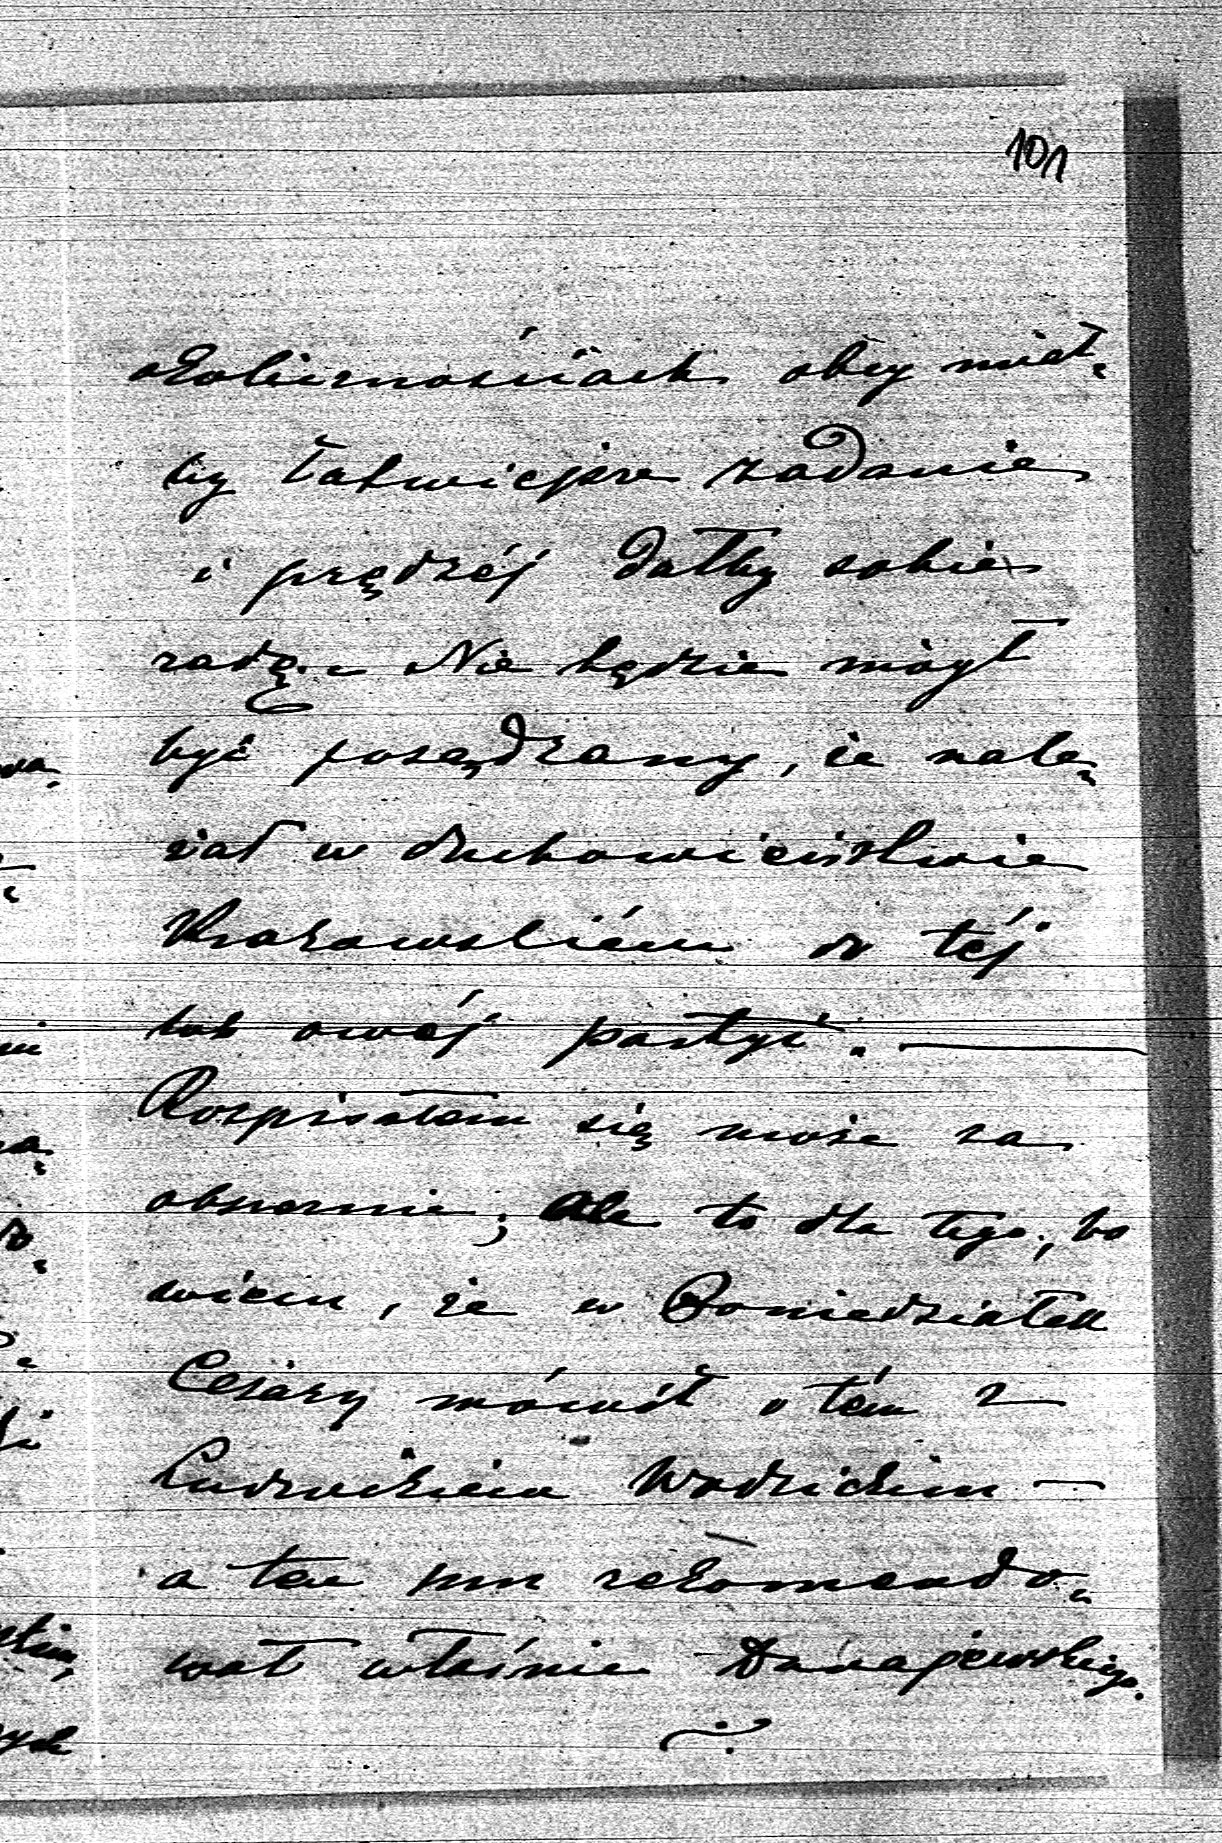 101
okolicznościach obcy miał-
by łatwiejsze zadanie
i prędzéj dałby sobie
radę. Nie będzie mógł
być posądzany, że nale-
żał w duchowieństwie
Krakowskiém do téj
lub owéj partyi. —
Rozpisałem się może za
obszernie; ale to dla tego, bo
wiem, że w Poniedziałek
Cesarz mówił o tém z
Ludwikiem Wodzickim —
a ten mu rekomendo-
wał właśnie Dunajewskiego.